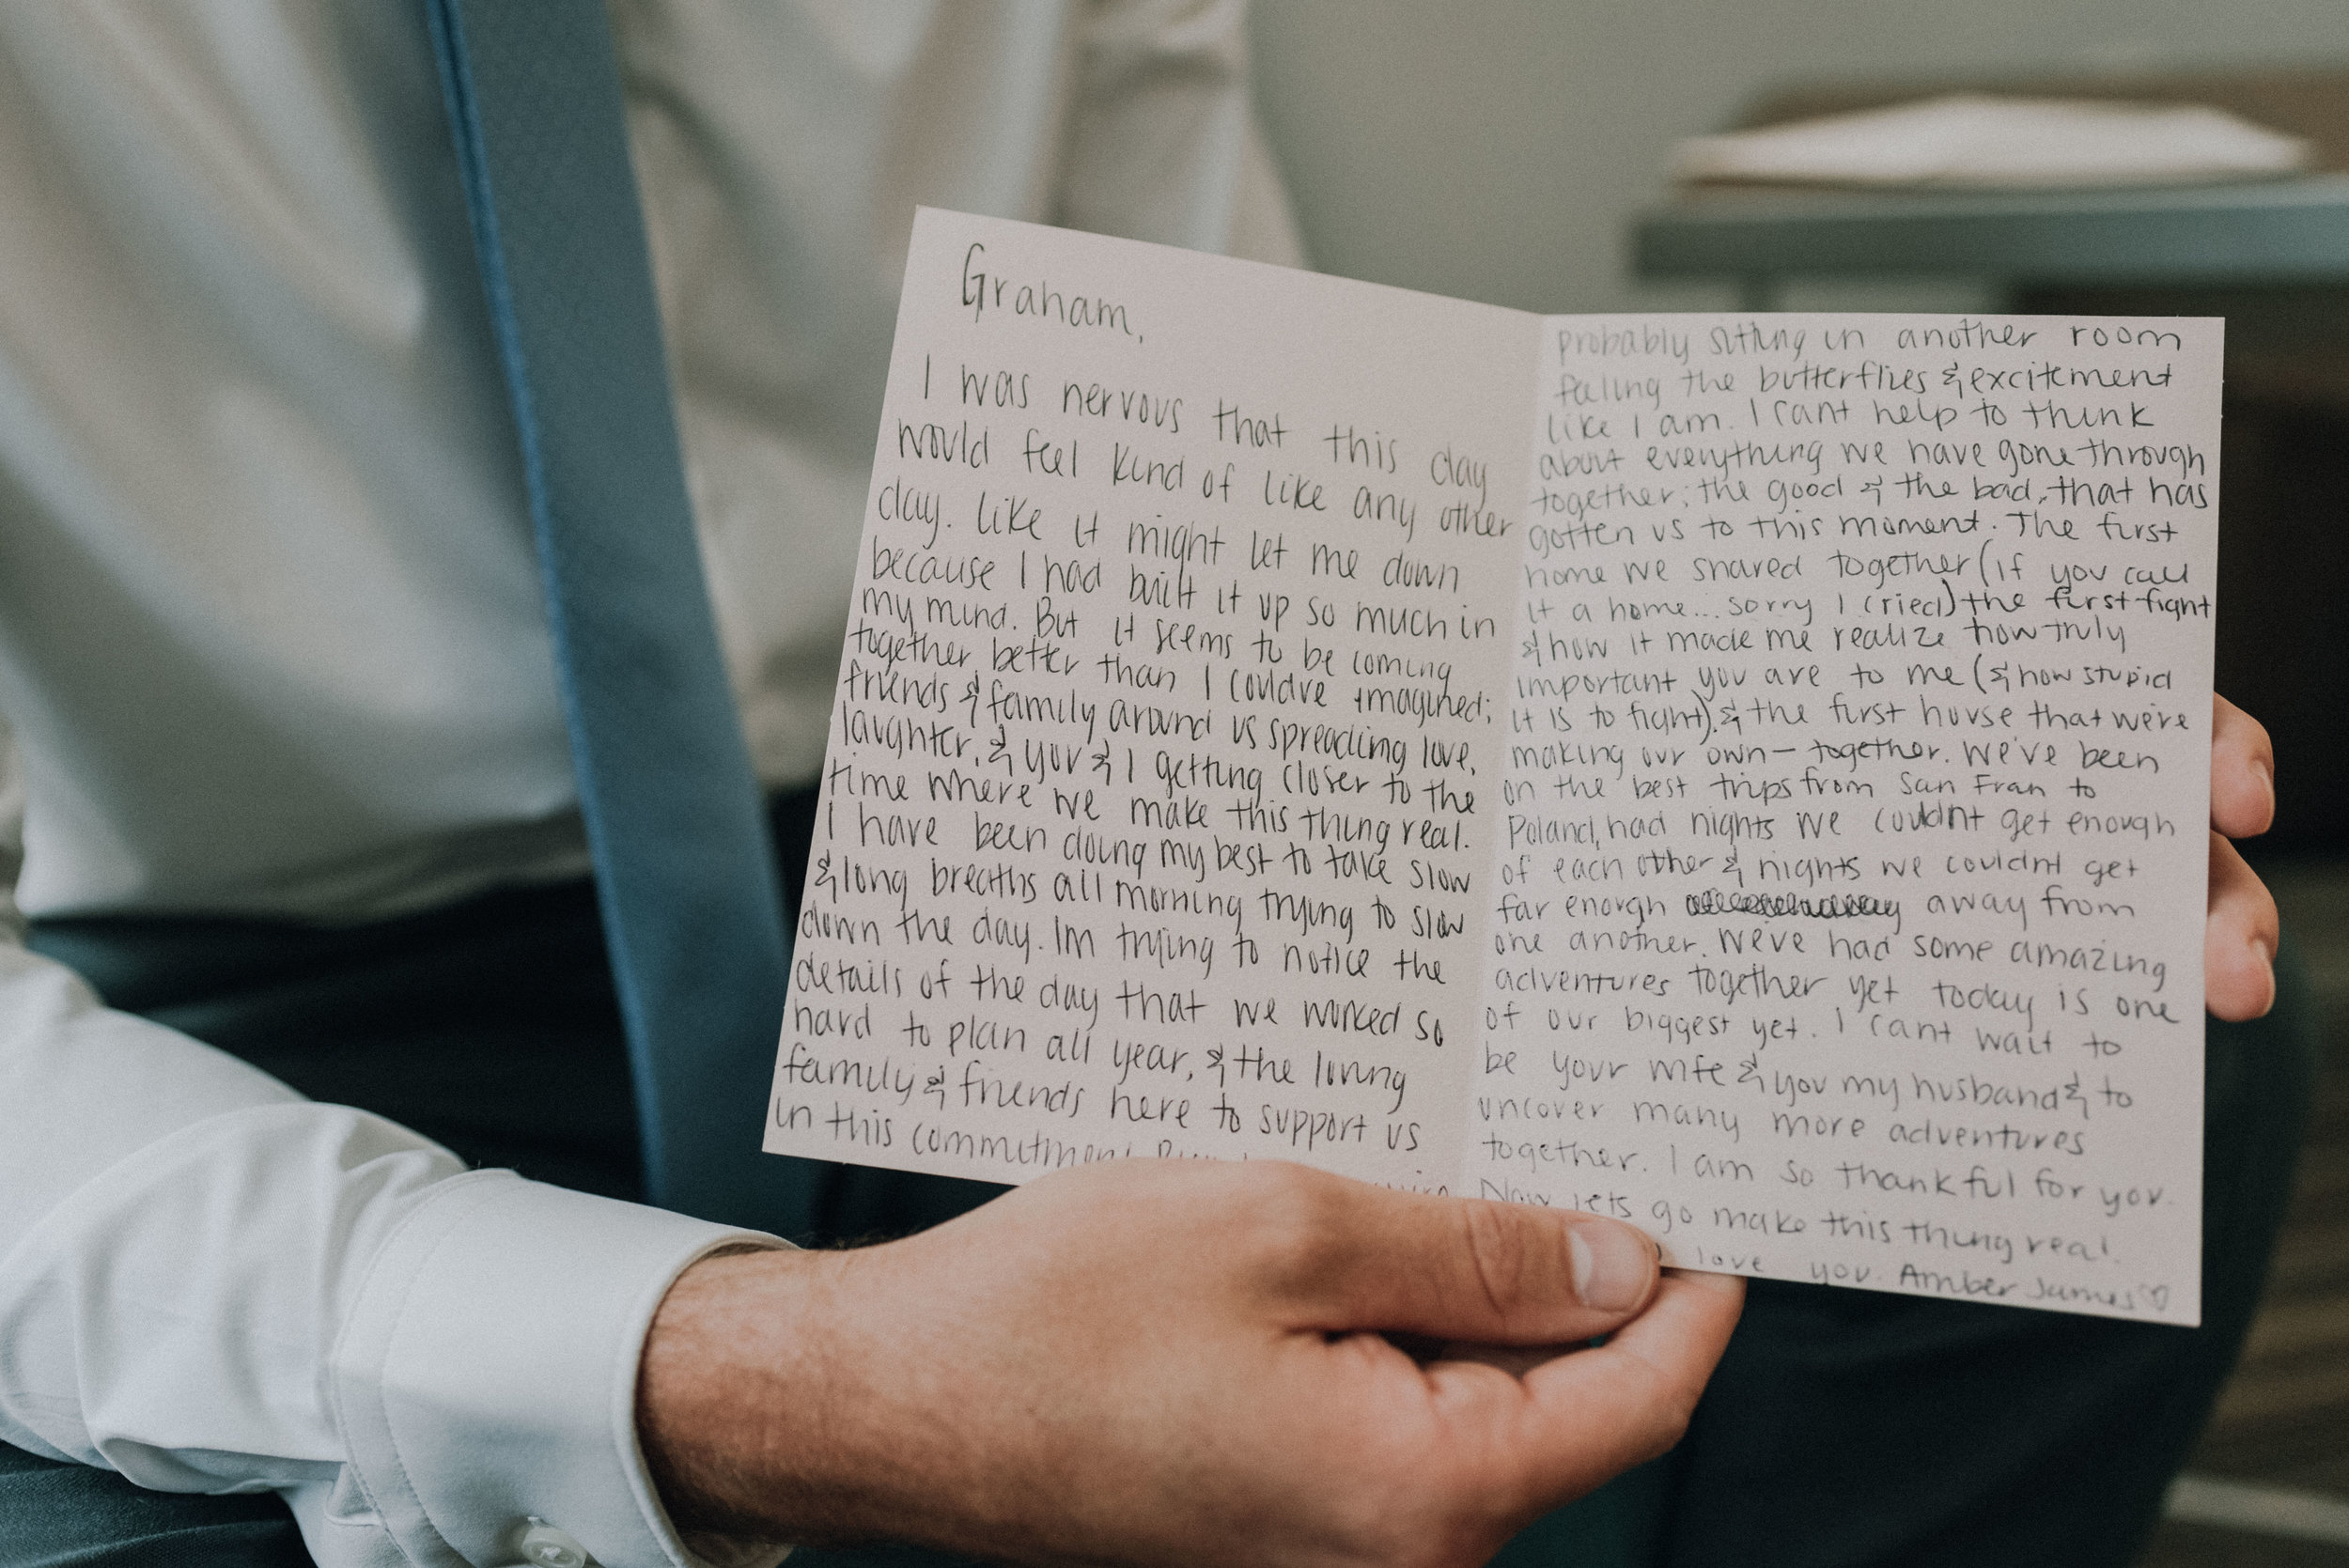 Graham,
I was nervous that this day
would feel kind of like any other
day. Like it might let me down
because I had built it up so much in
my mind. But it seems to be coming
together better than I could've imagined;
friends & family around us spreading love,
laughter, & you & I getting closer to the
time where we make this thing real.
I have been doing my best to take slow
& long breaths all morning trying to slow
down the day. Im trying to notice the
details of the day that we worked so
hard to plan all year, & the loving
family & friends here to support us
in this commitment.
probably sitting in another room
feeling the butterflies & excitement
like I am. I cant help to think
about everything we have gone through
together; the good & the bad, that has
gotten us to this moment. The first
home we shared together (if you call
it a home... sorry I cried) the first fight
& how it made me realize how truly
important you are to me (& how stupid
it is to fight), & the first house that we're
making our own - together. We've been
on the best trips from San Fran to
Poland, had nights we couldnt get enough
of each other & nights we couldnt get
far enough away from
one another. We've had some amazing
adventures together yet today is one
of our biggest yet. I cant wait to
be your wife & you my husband & to
uncover many more adventures
together. I am so thankful for you.
Now lets go make this thing real.
love you. Amber James ♡